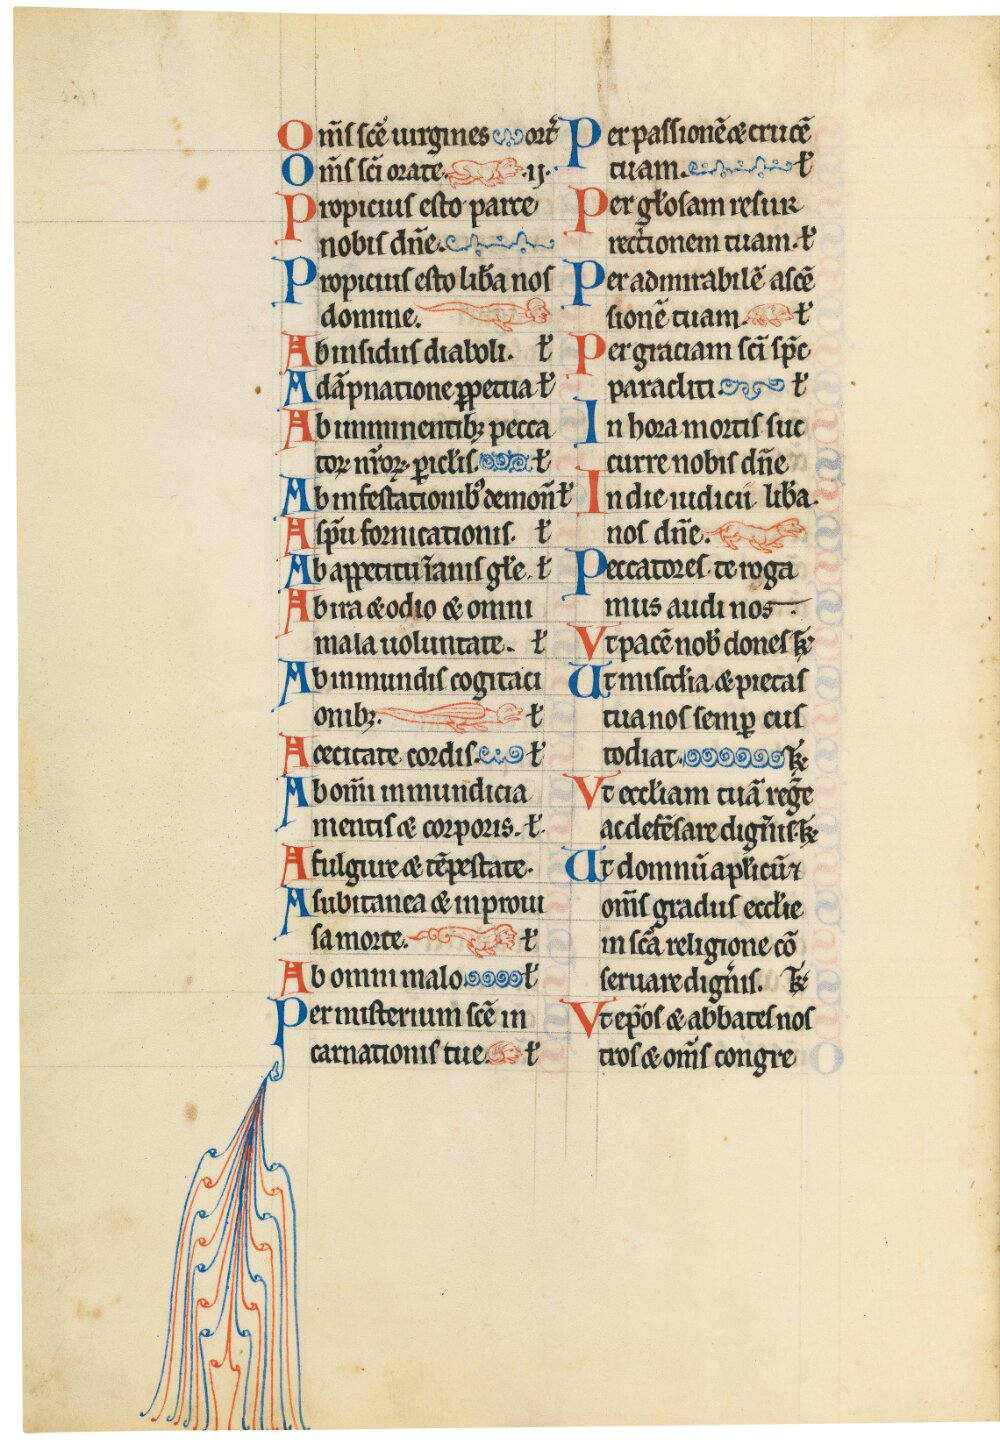 Om̄s sc̄e uirgines ort̄
Om̄s sc̄i orate. .ij.
Propicius esto parce
nobis dn̄e.
Propicius esto lib̄a nos
domine.
Ab insidiis diaboli. ł
A dāpnatione ꝑpetua ł
Ab imminentibꝫ pecca
torꝫ nr̄orꝫ ꝑiclīs. ł
Ab infestationibꝰ demon̄ ł
A sp̄u fornicationis. ł
Ab appetitu īanis gl̄e. ł
Ab ira ⁊ odio ⁊ omni
mala uoluntate. ł
Ab inmundis cogitaci
onibꝫ. ł
A cecitate cordis. ł
Ab om̄i inmundicia
mentis ⁊ corporis. ł
A fulgure ⁊ tēpestate.
A subitanea ⁊ inproui
sa morte. ł
Ab omni malo ł
Per misterium sc̄e in
carnationis tue. ł
Per passionē ⁊ crucē
tuam. ł
Per gl̄osam resur
rectionem tuam. ł
Per admirabilē ascē
sionē tuam. ł
Per graciam sc̄i sp̄c
paracliti ł
In hora mortis suc
curre nobis dn̄e
In die iudicii lib̄a.
nos dn̄e.
Peccatores te roga
mus audi nos
Vt pacē nob̄ dones
Ut misc̄dia ⁊ pietas
tua nos semꝑ cus
todiat.
Vt eccl̄iam tuā reg̃e
ac defēsare dign̄is
Ut domnū ap̄licū ⁊
om̄s gradus eccl̄ie
in sc̄a religione cō
seruare dign̄is.
Vt ep̄os ⁊ abbates nos
tros ⁊ om̄s congre